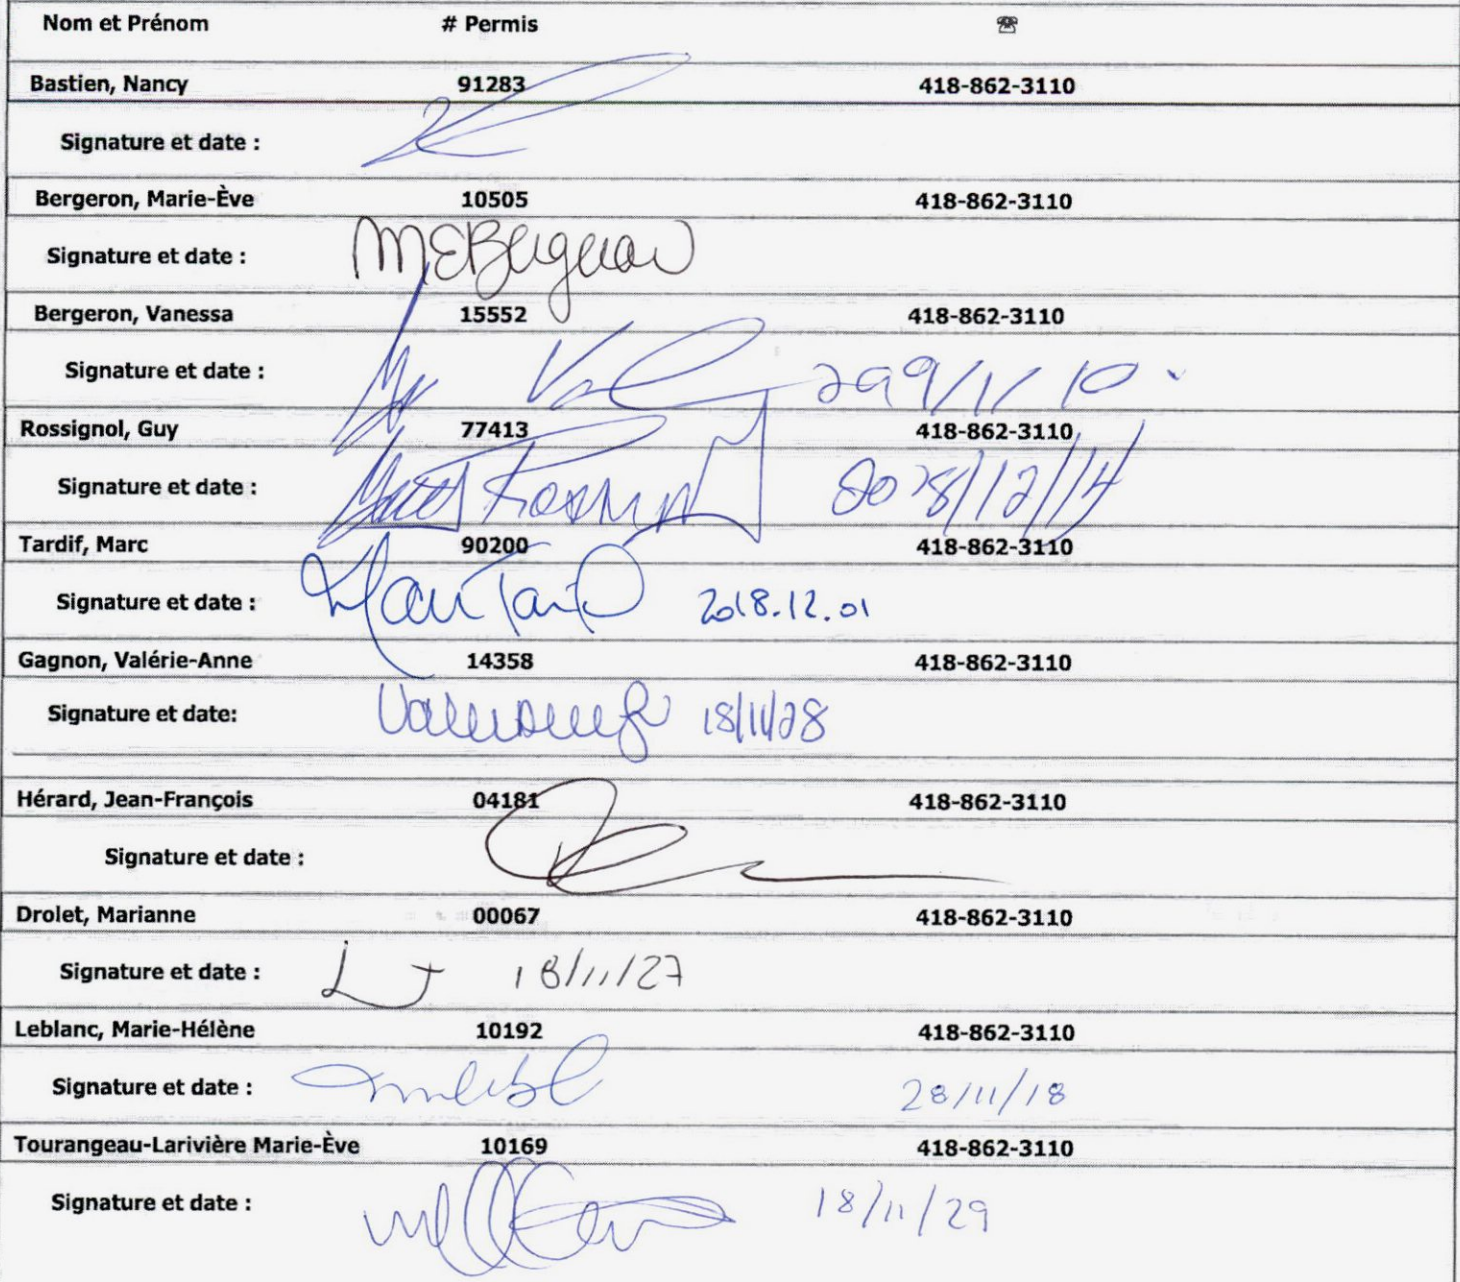 Nom et Prénom # Permis ☎
Bastien, Nancy 91283 418-862-3110
Signature et date :
Bergeron, Marie-Ève 10505 418-862-3110
Signature et date : MEBergeron
Bergeron, Vanessa 15552 418-862-3110
Signature et date :
Rossignol, Guy 77413 418-862-3110
Signature et date :
Tardif, Marc 90200 418-862-3110
Signature et date : Marc Tardif 2018.12.01
Gagnon, Valérie-Anne 14358 418-862-3110
Signature et date: 18/11/28
Hérard, Jean-François 04181 418-862-3110
Signature et date :
Drolet, Marianne 00067 418-862-3110
Signature et date : 18/11/27
Leblanc, Marie-Hélène 10192 418-862-3110
Signature et date : 28/11/18
Tourangeau-Larivière Marie-Ève 10169 418-862-3110
Signature et date : 18/11/29